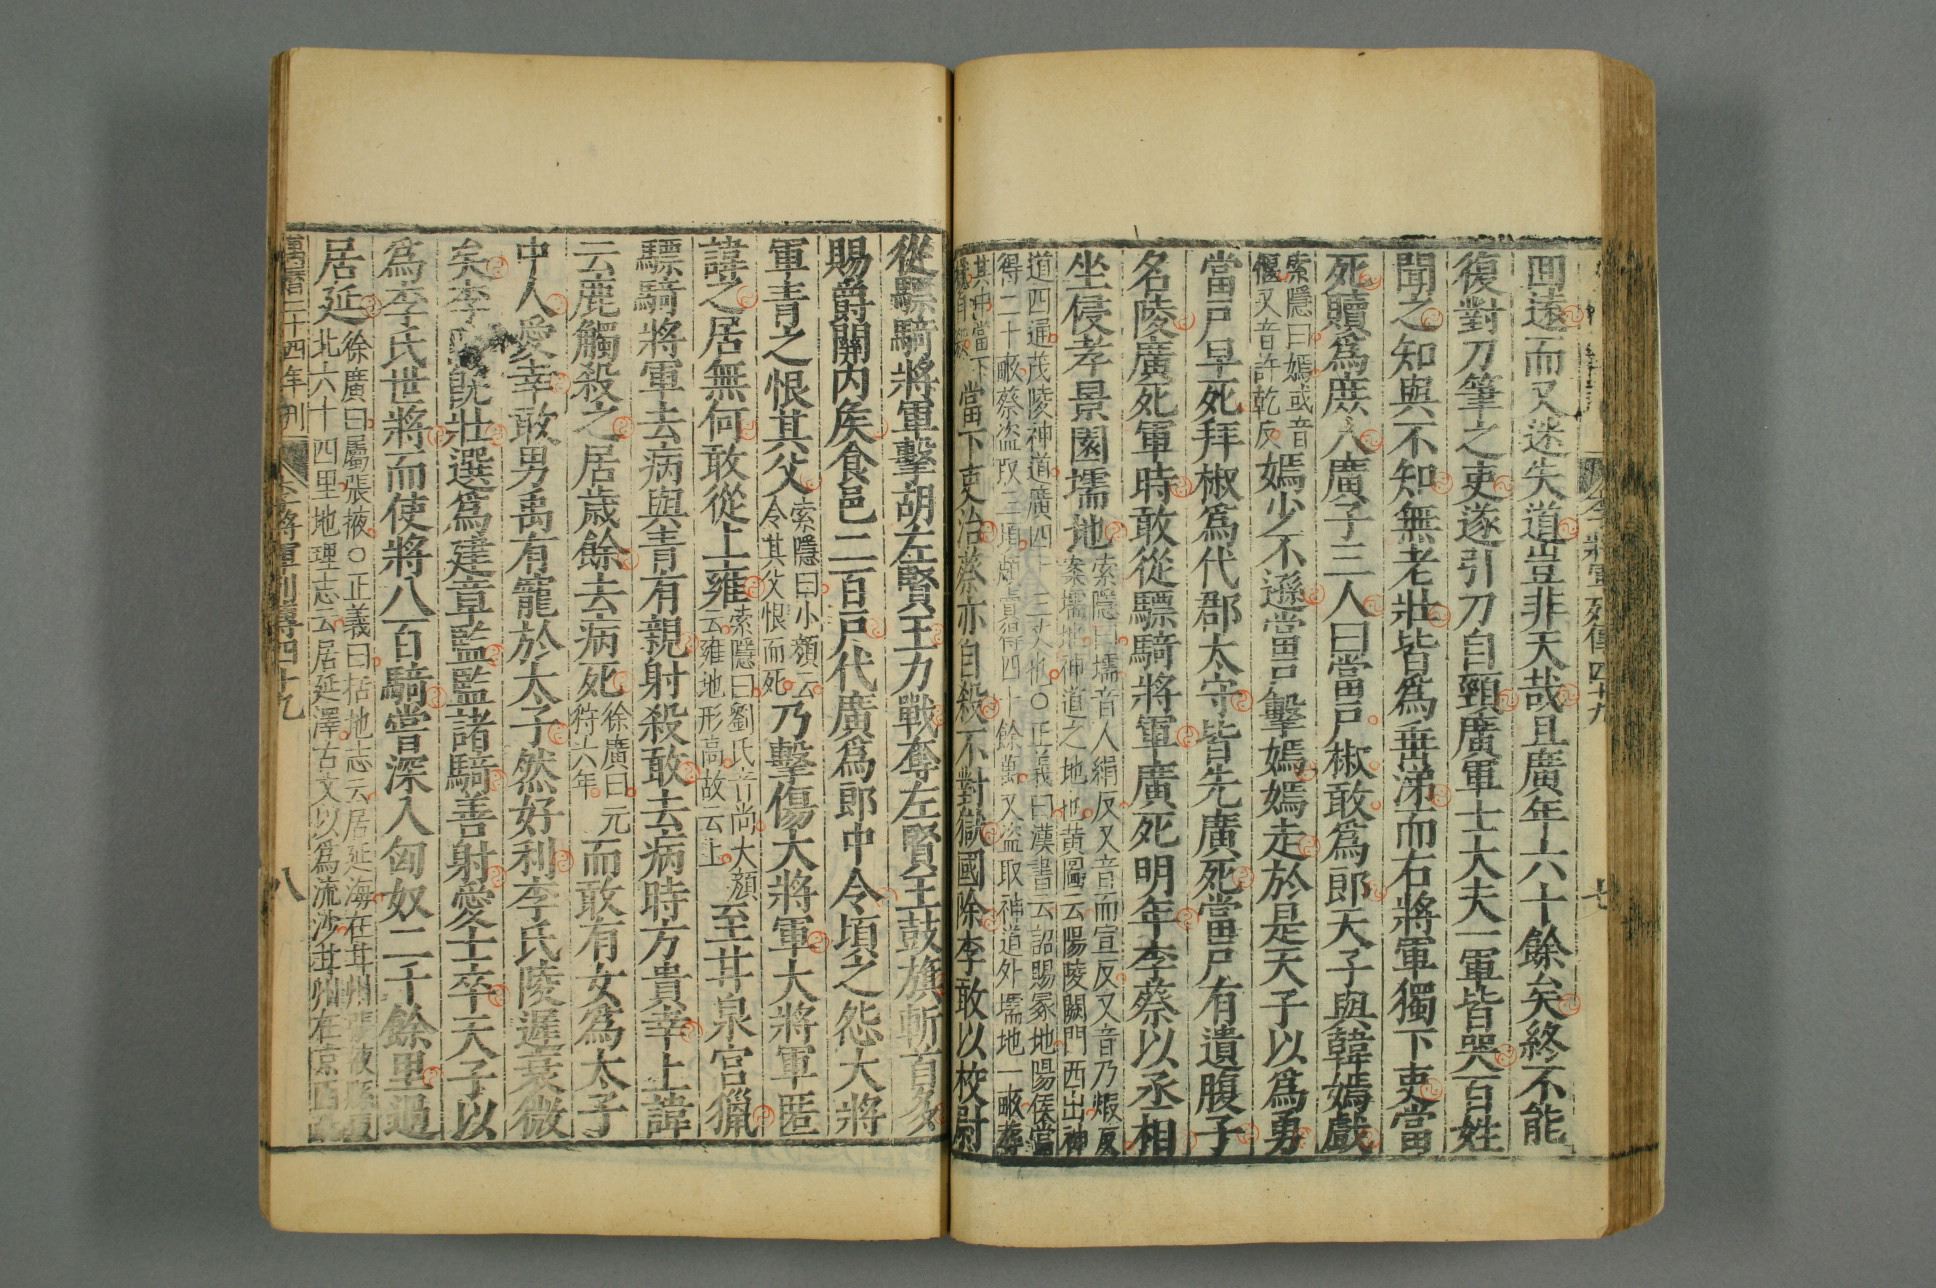 回遠而又迷失道豈非天哉且廣年六十餘矣終不能
復對刀筆之吏遂引刀自剄廣軍士大夫一軍皆哭百姓
聞之知與不知無老壯皆爲垂涕而右將軍獨下吏當
死贖爲庶人廣子三人曰當戶椒敢爲郎天子與韓嫣戲
索隱曰嫣或音
偃又音許乾反
嫣少不遜當戶擊嫣嫣走於是天子以爲勇
當戶早死拜椒爲代郡太守皆先廣死當戶有遺腹子
名陵廣死軍時敢從驃騎將軍廣死明年李蔡以丞相
坐侵孝景園壖地
索隱曰壖音人絹反又音而宣反又音乃煗反
案壖地神道之地也黄圖云陽陵闕門西出神
道四通茂陵神道廣四十三丈也○正義曰漢書云詔賜冢地陽陵當
得二十畝蔡盜取三頃頗賣得四十餘萬又盜取神道外壖地一畝葬
其中當下
當下吏治蔡亦自殺不對獄國除李敢以校尉
從驃騎將軍擊胡左賢王力戰奪左賢王鼓旗斬首多
賜爵關内侯食邑二百戶代廣爲郎中令頃之怨大將
軍青之恨其父
索隱曰小顔云
令其父恨而死
乃擊傷大將軍大將軍匿
諱之居無何敢從上雍
索隱曰劉氏音尚大顔
云雍地形高故云上
至甘泉宮獵
驃騎將軍去病與青有親射殺敢去病時方貴幸上諱
云鹿觸殺之居歲餘去病死
徐廣曰元
狩六年
而敢有女爲太子
中人愛幸敢男禹有寵於太子然好利李氏陵遲衰微
矣李陵既壯選爲建章監監諸騎善射愛士卒天子以
爲李氏世將而使將八百騎嘗深入匈奴二千餘里過
居延
徐廣曰屬張掖○正義曰括地志云居延海在甘州張掖縣
北六十四里地理志云居延澤古文以爲流沙甘州在京西
萬曆二十四年刊
李將軍列傳四十九
八